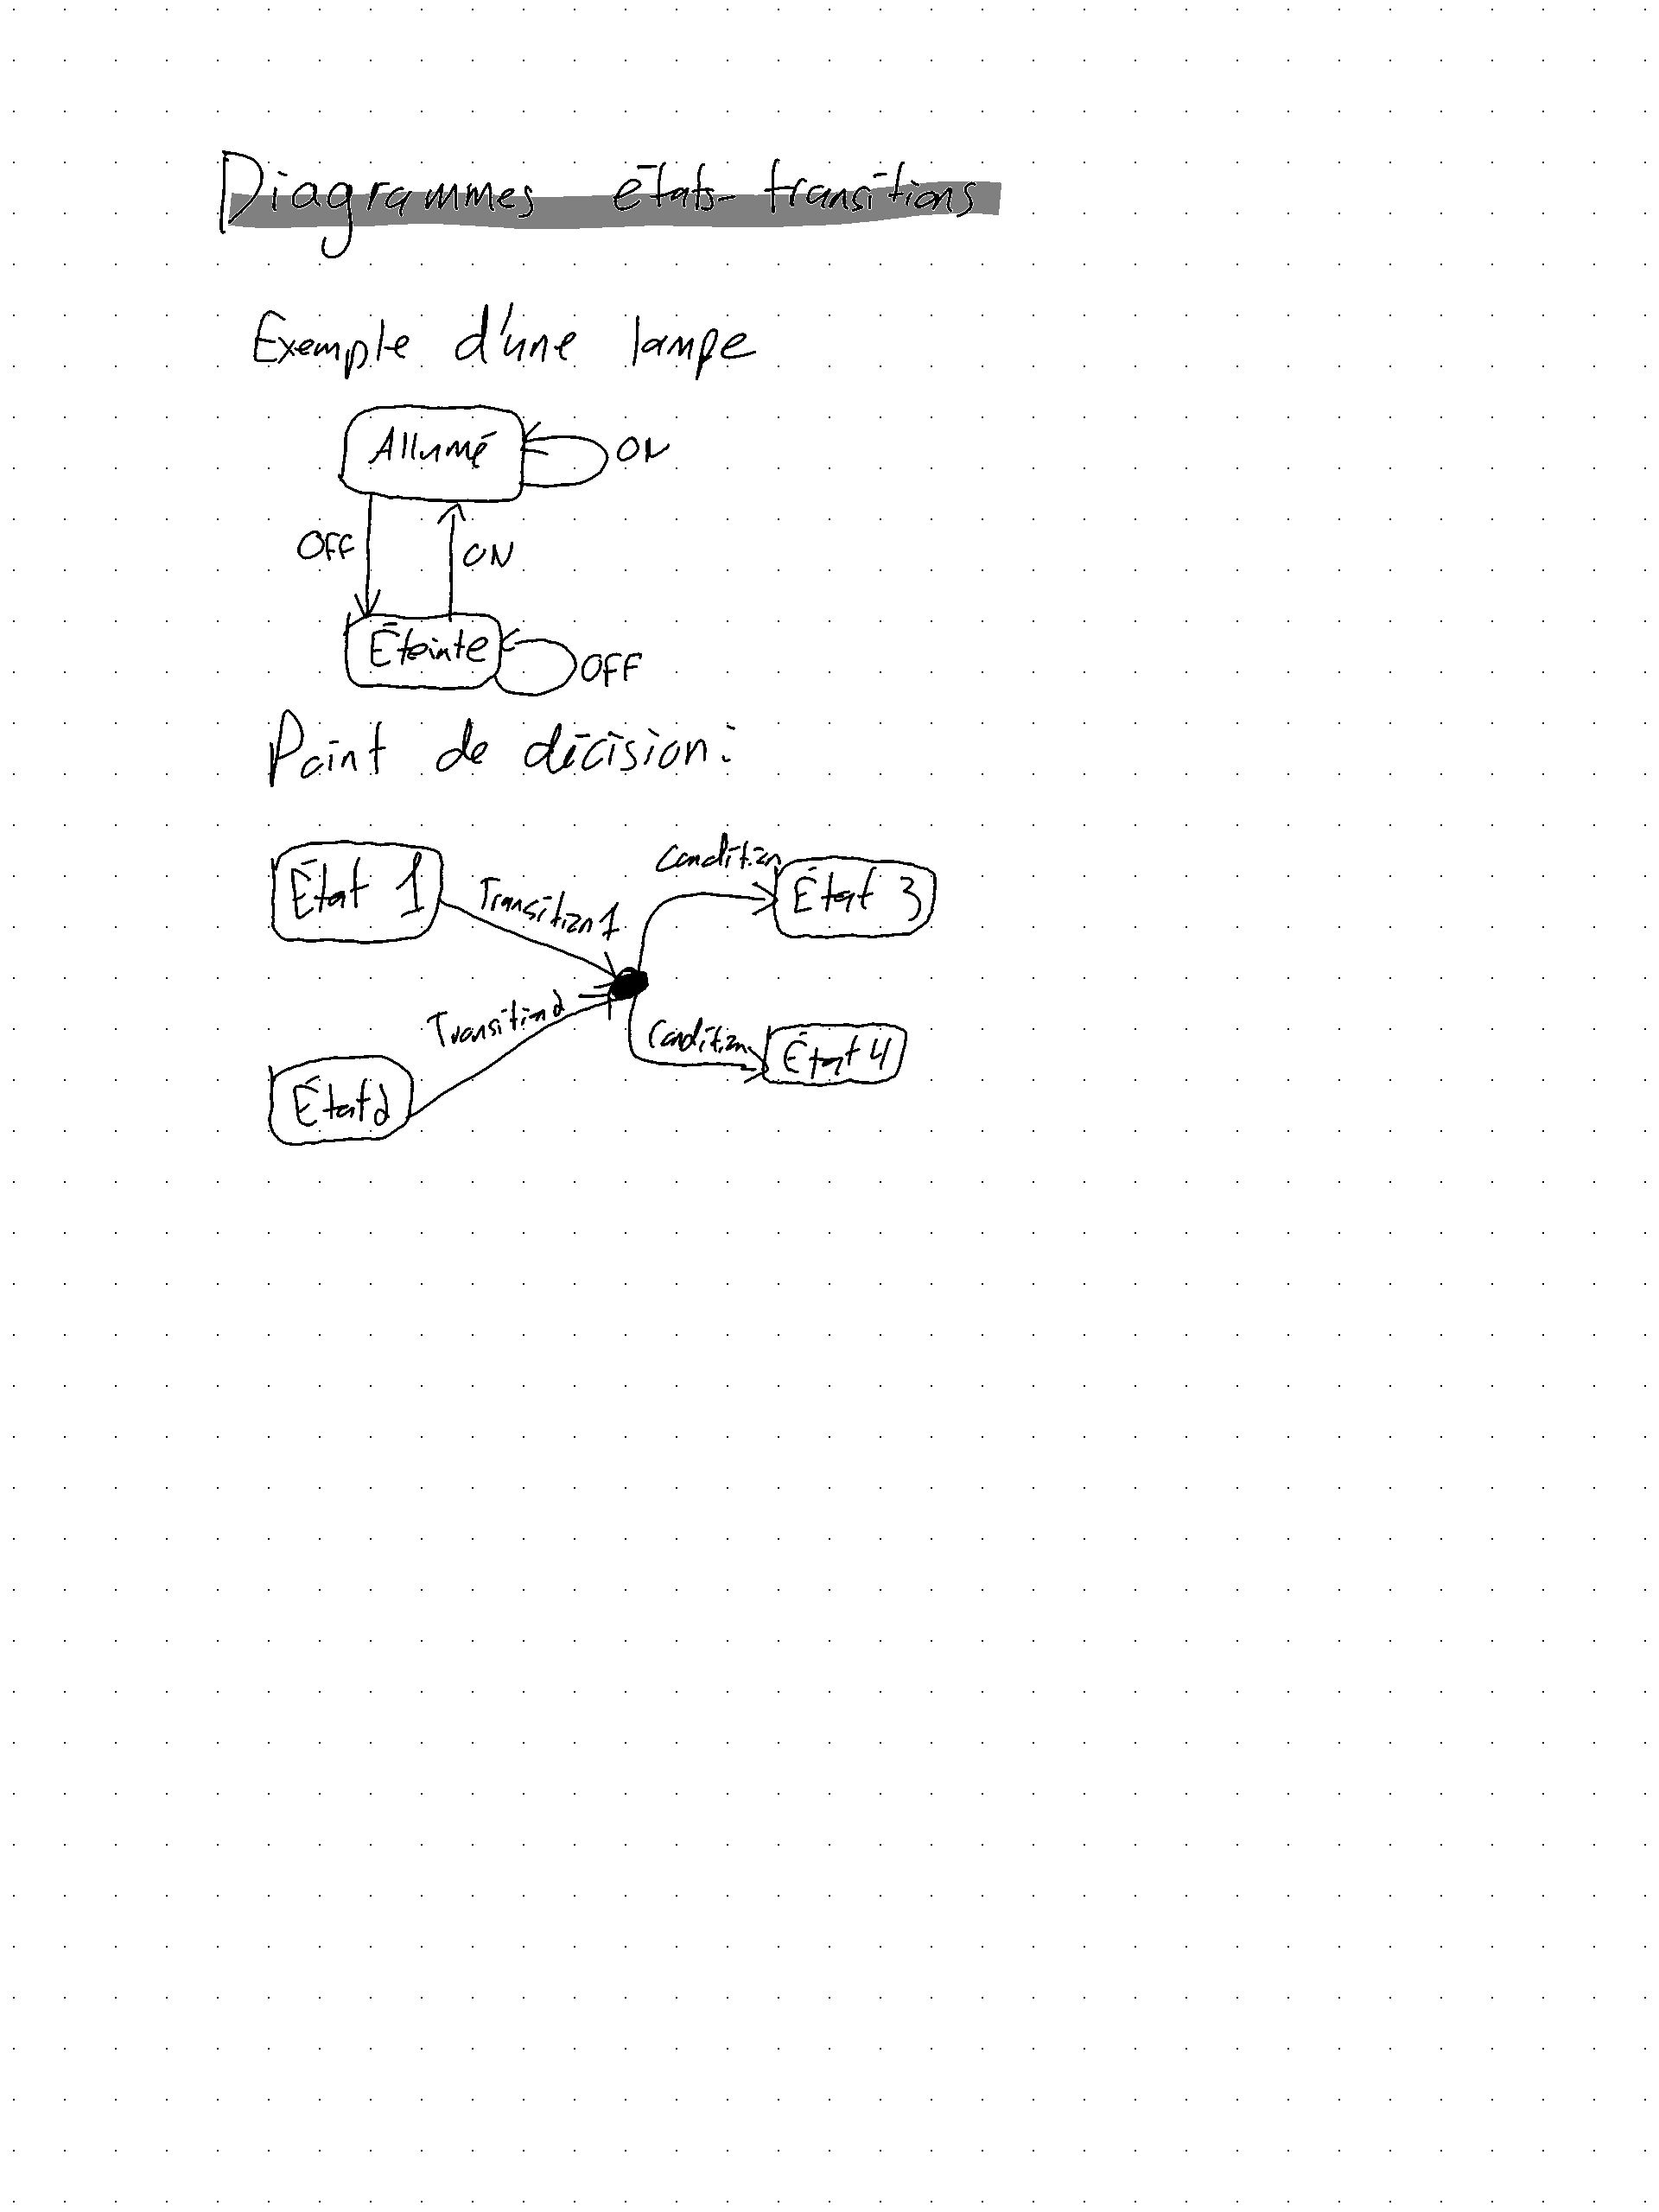 Diagrammes états-transitions
Exemple d'une lampe
Allumé
ON
OFF
ON
Éteinte
OFF
Point de décision:
État 1
Transition 1
Condition
État 3
Transition 2
Condition
État 4
État 2